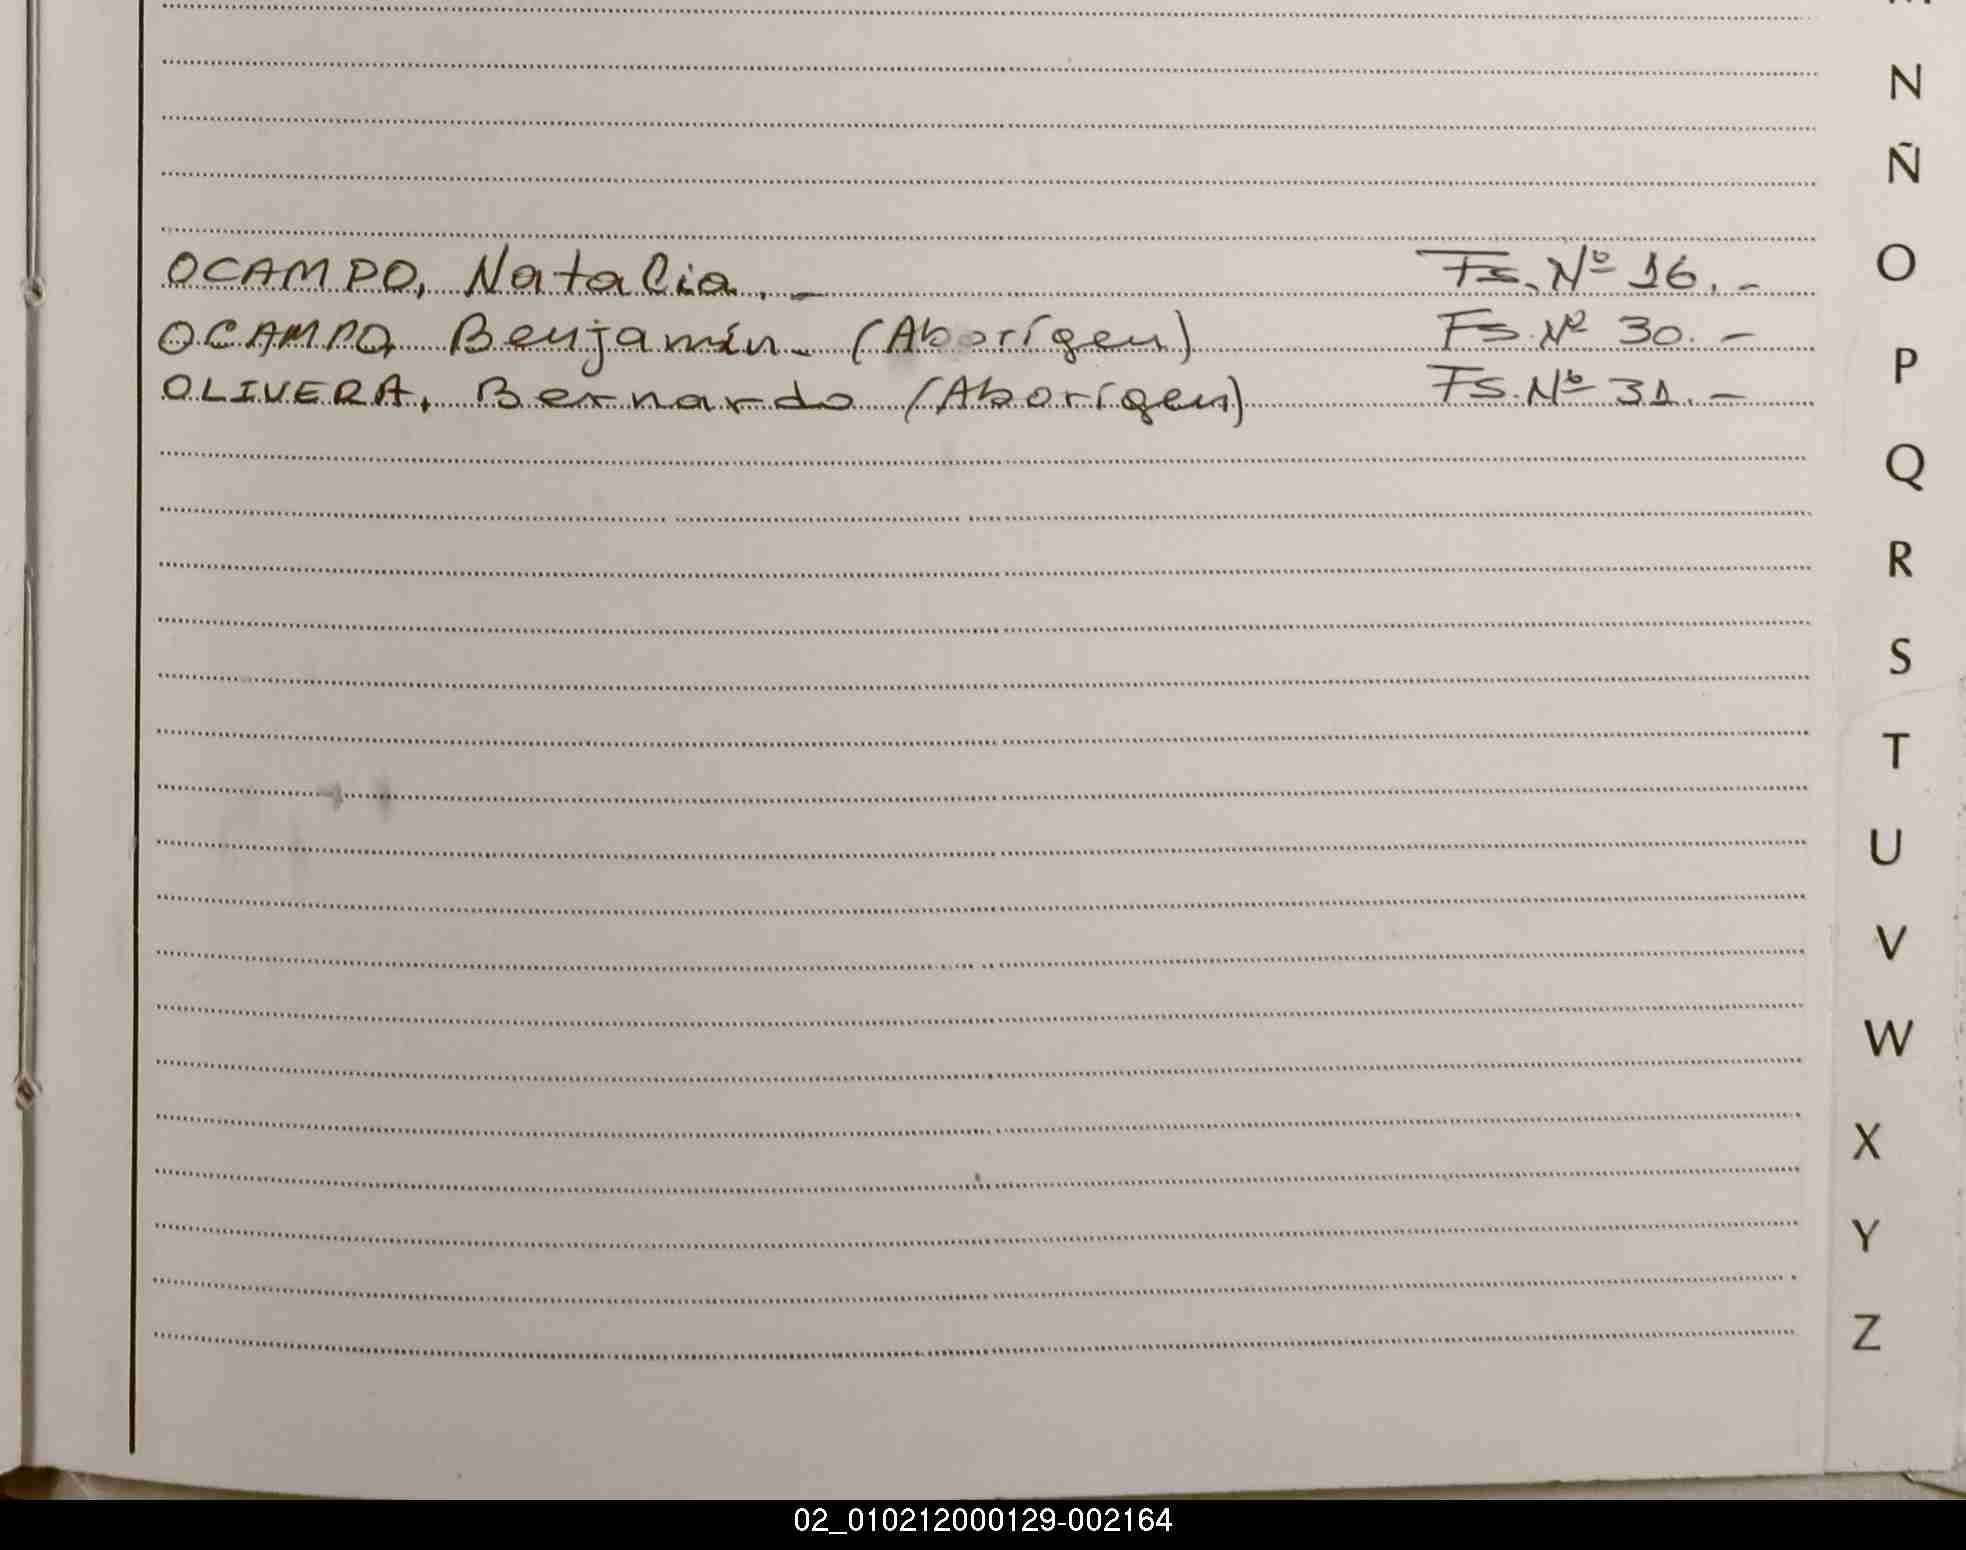 N
Ñ
OCAMPO, Natalia.- Fs. Nº 16.-
O
OCAMPO, Benjamín.- (Aborígen) Fs. Nº 30.-
P
OLIVERA, Bernardo (Aborígen) Fs. Nº 31.-
Q
R
S
T
U
V
W
X
Y
Z
02_010212000129-002164